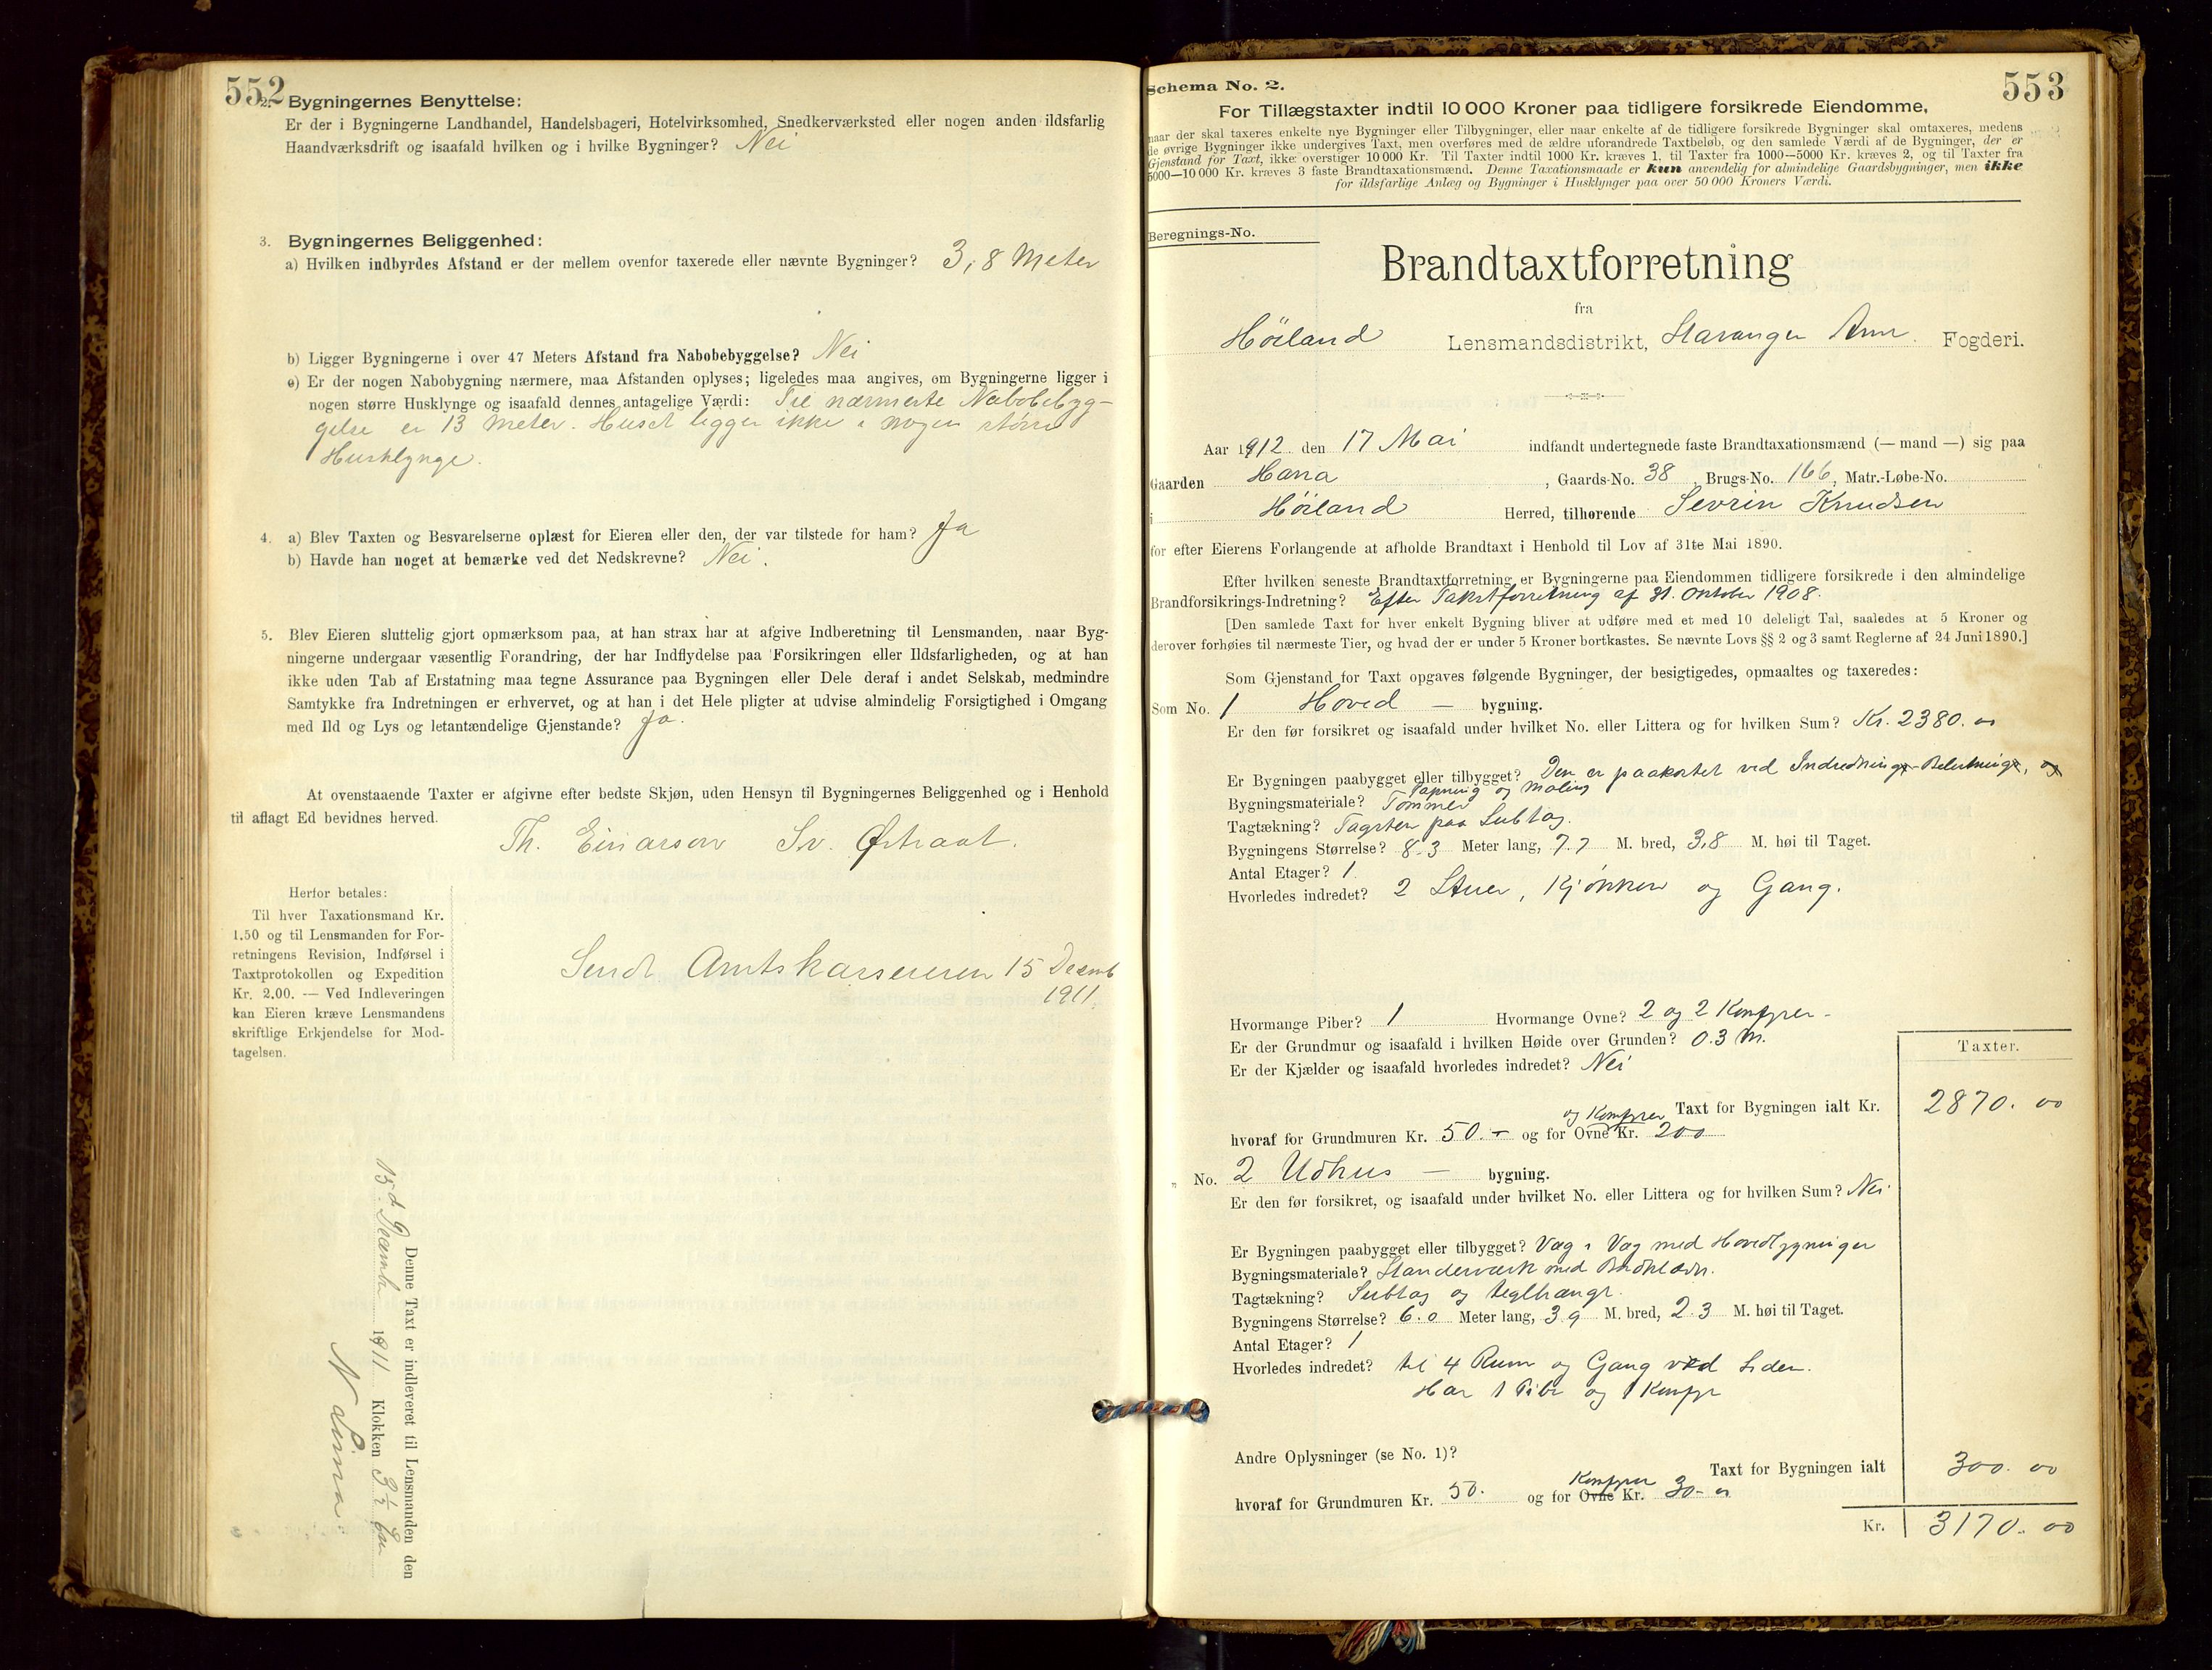 552
2. Bygningernes Benyttelse:
Er der i Bygningerne Landhandel, Handelsbageri, Hotelvirksomhed, Snedkerværksted eller nogen anden ildsfarlig
Haandværksdrift og isaafald hvilken og i hvilke Bygninger? Nei
3. Bygningernes Beliggenhed:
a) Hvilken indbyrdes Afstand er der mellem ovenfor taxerede eller nævnte Bygninger? 3,8 Meter
b) Ligger Bygningerne i over 47 Meters Afstand fra Nabobebyggelse? Nei
c) Er der nogen Nabobygning nærmere, maa Afstanden oplyses; ligeledes maa angives, om Bygningerne ligger i
nogen større Husklynge og isaafald dennes antagelige Værdi: Til nærmeste Nabobebyg-
gelse er 13 meter. Huset ligger ikke i nogen større
Husklynge.
4. a) Blev Taxten og Besvarelserne oplæst for Eieren eller den, der var tilstede for ham? Ja
b) Havde han noget at bemærke ved det Nedskrevne? Nei.
5. Blev Eieren sluttelig gjort opmærksom paa, at han strax har at afgive Indberetning til Lensmanden, naar Byg-
ningerne undergaar væsentlig Forandring, der har Indflydelse paa Forsikringen eller Ildsfarligheden, og at han
ikke uden Tab af Erstatning maa tegne Assurance paa Bygningen eller Dele deraf i andet Selskab, medmindre
Samtykke fra Indretningen er erhvervet, og at han i det Hele pligter at udvise almindelig Forsigtighed i Omgang
med Ild og Lys og letantændelige Gjenstande? Ja.
At ovenstaaende Taxter er afgivne efter bedste Skjøn, uden Hensyn til Bygningernes Beliggenhed og i Henhold
til aflagt Ed bevidnes herved.
Th. Einarson Sv. Østraat.
Herfor betales:
Til hver Taxationsmand Kr.
1.50 og til Lensmanden for For-
retningens Revision, Indførsel i
Taxtprotokollen og Expedition
Kr. 2.00. — Ved Indleveringen
kan Eieren kræve Lensmandens
skriftlige Erkjendelse for Mod-
tagelsen.
Sendt Amtskassereren 15 Decemb
1911.
Denne Taxt er indleveret til Lensmanden den
15d Decembr 1911 Klokken 3 1/2 Em
553
Schema No. 2.
For Tillægstaxter indtil 10 000 Kroner paa tidligere forsikrede Eiendomme,
naar der skal taxeres enkelte nye Bygninger eller Tilbygninger, eller naar enkelte af de tidligere forsikrede Bygninger skal omtaxeres, medens
de øvrige Bygninger ikke undergives Taxt, men overføres med de ældre uforandrede Taxtbeløb, og den samlede Værdi af de Bygninger, der er
Gjenstand for Taxt, ikke overstiger 10 000 Kr. Til Taxter indtil 1000 Kr. kræves 1, til Taxter fra 1000—5000 Kr. kræves 2, og til Taxter fra
5000—10 000 Kr. kræves 3 faste Brandtaxationsmænd. Denne Taxationsmaade er kun anvendelig for almindelige Gaardsbygninger, men ikke
for ildsfarlige Anlæg og Bygninger i Husklynger paa over 50 000 Kroners Værdi.
Beregnings-No.
Brandtaxtforretning
fra
Høiland Lensmandsdistrikt, Stavanger Amt. Fogderi.
Aar 1912 den 17 Mai indfandt undertegnede faste Brandtaxationsmænd (— mand —) sig paa
Gaarden Hana, Gaards-No. 38, Brugs-No. 166, Matr.-Løbe-No.
i Høiland Herred, tilhørende Sevrin Knudsen
for efter Eierens Forlangende at afholde Brandtaxt i Henhold til Lov af 31te Mai 1890.
Efter hvilken seneste Brandtaxtforretning er Bygningerne paa Eiendommen tidligere forsikrede i den almindelige
Brandforsikrings-Indretning? Efter Takstforretning af 31. Oktober 1908.
[Den samlede Taxt for hver enkelt Bygning bliver at udføre med et med 10 deleligt Tal, saaledes at 5 Kroner og
derover forhøies til nærmeste Tier, og hvad der er under 5 Kroner bortkastes. Se nævnte Lovs §§ 2 og 3 samt Reglerne af 24 Juni 1890.]
Som Gjenstand for Taxt opgaves følgende Bygninger, der besigtigedes, opmaaltes og taxeredes:
Som No. 1 Hoved — bygning.
Er den før forsikret og isaafald under hvilket No. eller Littera og for hvilken Sum? Kr. 2380. 00
Er Bygningen paabygget eller tilbygget? Den er paakostet ved Indredning, Beklædning, og
Tapning og Maling
Bygningsmateriale? Tømmer
Tagtækning? Tagsten paa Subtag.
Bygningens Størrelse? 8.3 Meter lang, 7.7 M. bred, 3,8 M. høi til Taget.
Antal Etager? 1
Hvorledes indredet? 2 Stuer, Kjøkken og Gang.
Hvormange Piber? 1 Hvormange Ovne? 2 og 2 Komfyrer.
Er der Grundmur og isaafald i hvilken Høide over Grunden? 0.3 M.
Er der Kjælder og isaafald hvorledes indredet? Nei
Taxter.
Taxt for Bygningen ialt Kr. 2870. 00
og Komfyrer
hvoraf for Grundmuren Kr. 50.- og for Ovne Kr. 200
„ No. 2 Udhus — bygning.
Er den før forsikret, og isaafald under hvilket No. eller Littera og for hvilken Sum? Nei
Er Bygningen paabygget eller tilbygget? Væg i Væg med Hovedbygningen
Bygningsmateriale? Standerværk med Bordklædn.
Tagtækning? Subtag og teglhængt.
Bygningens Størrelse? 6.0 Meter lang, 3.9 M. bred, 2.3 M. høi til Taget.
Antal Etager? 1
Hvorledes indredet? til 4 Rum og Gang ved Siden.
Har 1 Pibe og 1 Komfyr
Andre Oplysninger (se No. 1)?
Taxt for Bygningen ialt 300. 00
Komfyrer
hvoraf for Grundmuren Kr. 50. og for Ovne Kr. 30.-
Kr. 3170. 00